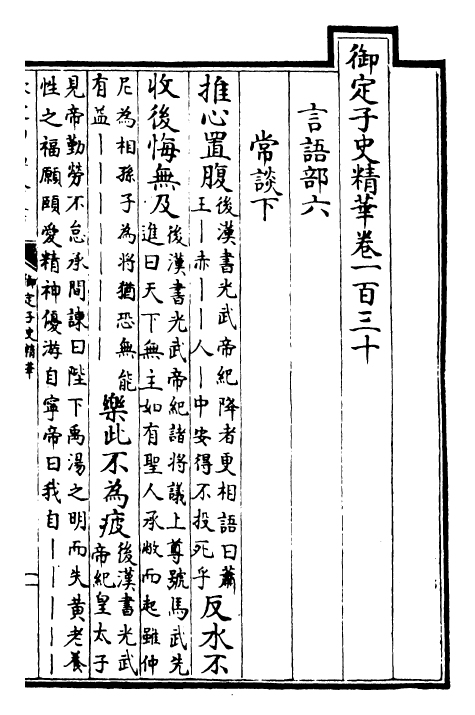 御定子史精華卷一百三十
言語部六
常談下
推心置腹
後漢書光武帝紀降者更相語曰蕭
王丨赤丨丨人丨中安得不投死乎
反水不
收後悔無及
後漢書光武帝紀諸將議上尊號馬武先
進曰天下無主如有聖人承敝而起雖仲
尼為相孫子為將猶恐無能
有益丨丨丨丨丨丨
樂此不為疲
後漢書光武
帝紀皇太子
見帝勤勞不怠承間諫曰陛下禹湯之明而失黃老養
性之福願頤愛精神優游自寧帝曰我自丨丨丨丨丨
御定子史精華
一